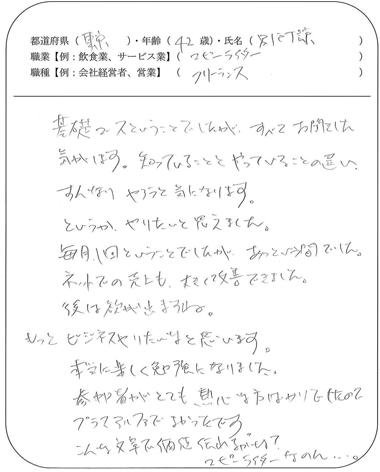 都道府県(東京)・年齢(42歳)・氏名()
職業【例:飲食業、サービス業】(コピーライター)
職種【例:会社経営者、営業】(フリーランス)
基礎コースということでしたが、すべてお聞きした
気がします。知っていることとやっていることの違い、
すんなりやろうと気になります。
というか、やりたいと思えました。
毎月1回ということでしたが、あっという間でした。
ネットでの売上も、大きく改善できました。
後は欲が出ますね。
もっとビジネスやりたいなと思います。
本当に楽しく勉強になりました。
参加者がとても熱心な方ばかりでしたので
プラスアルファでよかったです
こんな文章で価値伝わるかしら?
コピーライターなのに…。